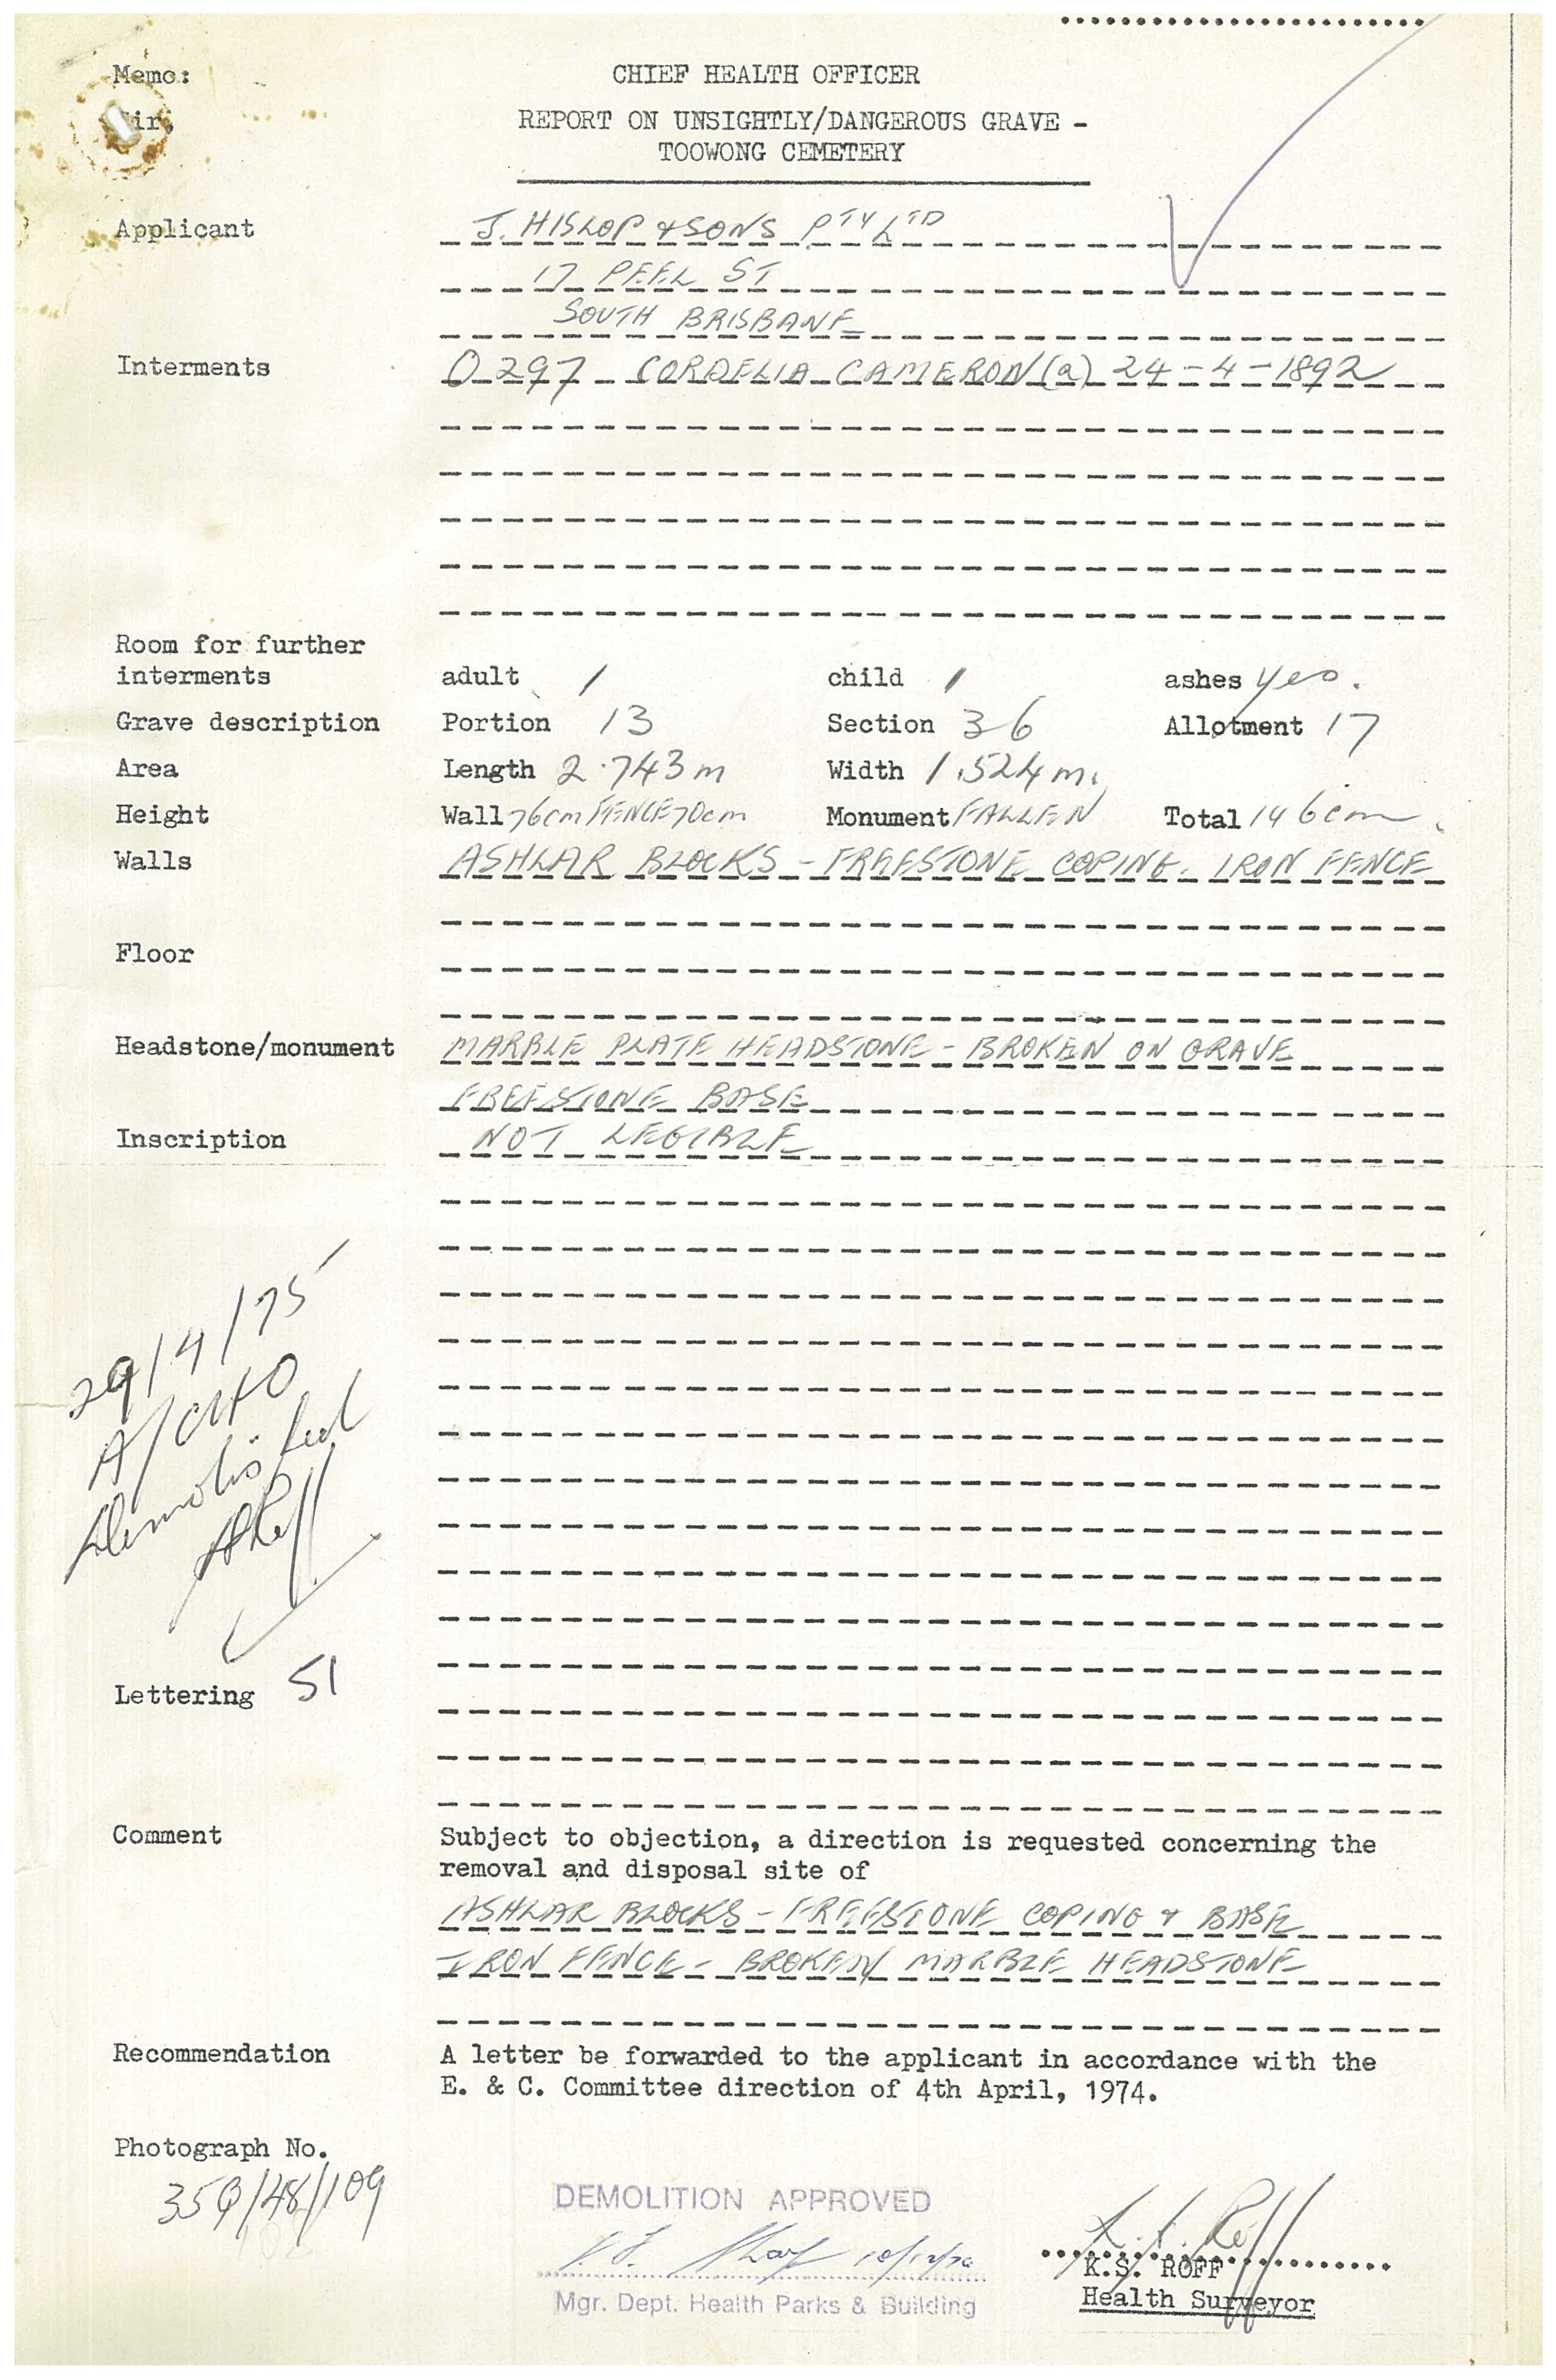 Memo:
CHIEF HEALTH OFFICER
Sir,
REPORT ON UNSIGHTLY/DANGEROUS GRAVE -
TOOWONG CEMETERY
Applicant J. HISLOP & SONS PTY LTD
17 PEEL ST
SOUTH BRISBANE
Interments O 297 CORDELIA CAMERON (a) 24-4-1892
Room for further
interments adult 1 child 1 ashes yes.
Grave description Portion 13 Section 36 Allotment 17
Area Length 2.743m Width 1.524m.
Height Wall 76cm FENCE 70cm Monument FALLEN Total 146cm
Walls ASHLAR BLOCKS - FREESTONE COPING. IRON FENCE
Floor
Headstone/monument MARBLE PLATE HEADSTONE - BROKEN ON GRAVE
FREESTONE BASE
Inscription NOT LEGIBLE
29/4/75
A/CHO
Demolished
Lettering 51
Comment Subject to objection, a direction is requested concerning the
removal and disposal site of
ASHLAR BLOCKS - FREESTONE COPING & BASE
IRON FENCE - BROKEN MARBLE HEADSTONE
Recommendation A letter be forwarded to the applicant in accordance with the
E. & C. Committee direction of 4th April, 1974.
Photograph No.
35Q/48/109
DEMOLITION APPROVED
K.S. ROFF
Mgr. Dept. Health Parks & Building
Health Surveyor